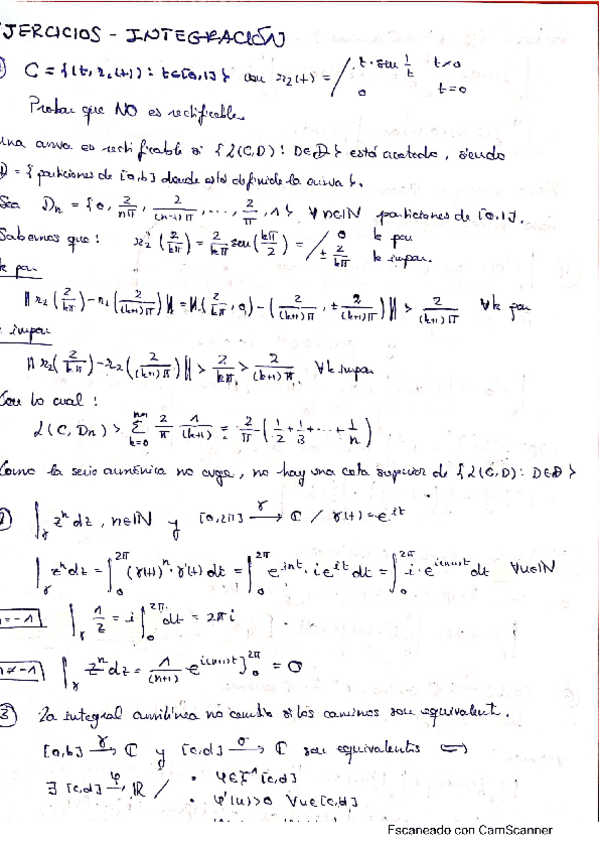 JERCICIOS - INTEGRACIÓN
C = {(t, r₂(t)) : t∈[0,1]} con r₂(t) = / t·sen 1/t t≠0
0 t=0
Probar que NO es rectificable.
una curva es rectificable si {L(C,D) : D∈𝒟} está acotado, siendo
𝒟 = {particiones de [a,b] donde está definida la curva}.
Sea Dn = {0, 2/nπ, 2/(n-1)π, ..., 2/π, 1} ∀n∈ℕ particiones de [0,1].
Sabemos que : r₂(2/kπ) = 2/kπ sen(kπ/2) = / 0 k par
± 2/kπ k impar.
k par
‖r₂(2/kπ) - r₂(2/(k+1)π)‖ = ‖(2/kπ, 0) - (2/(k+1)π, ± 2/(k+1)π)‖ > 2/(k+1)π ∀k par
impar
‖r₂(2/kπ) - r₂(2/(k+1)π)‖ > 2/kπ > 2/(k+1)π ∀k impar
Con lo cual :
L(C, Dn) > Σ 2/π 1/(k+1) = 2/π (1/2 + 1/3 + ... + 1/n)
Como la serie armónica no cvge, no hay una cota superior de {L(C,D) : D∈𝒟}
∫γ zⁿ dz, n∈ℕ y [0,2π] —γ→ ℂ / γ(t) = e^{it}
∫γ zⁿ dz = ∫₀^{2π} (γ(t))ⁿ · γ'(t) dt = ∫₀^{2π} e^{int} · i e^{it} dt = ∫₀^{2π} i · e^{i(n+1)t} dt ∀n∈ℕ
n = -1 ∫γ 1/z = i ∫₀^{2π} dt = 2πi
n ≠ -1 ∫γ zⁿ dz = 1/(n+1) e^{i(n+1)t}]₀^{2π} = 0
3) La integral curvilínea no cambia si los caminos son equivalent.
[a,b] —γ→ ℂ y [c,d] —σ→ ℂ son equivalentes ⇔
∃ [c,d] —φ→ ℝ / · φ∈𝒞¹[c,d]
· φ'(u)>0 ∀u∈[c,d]
Escaneado con CamScanner